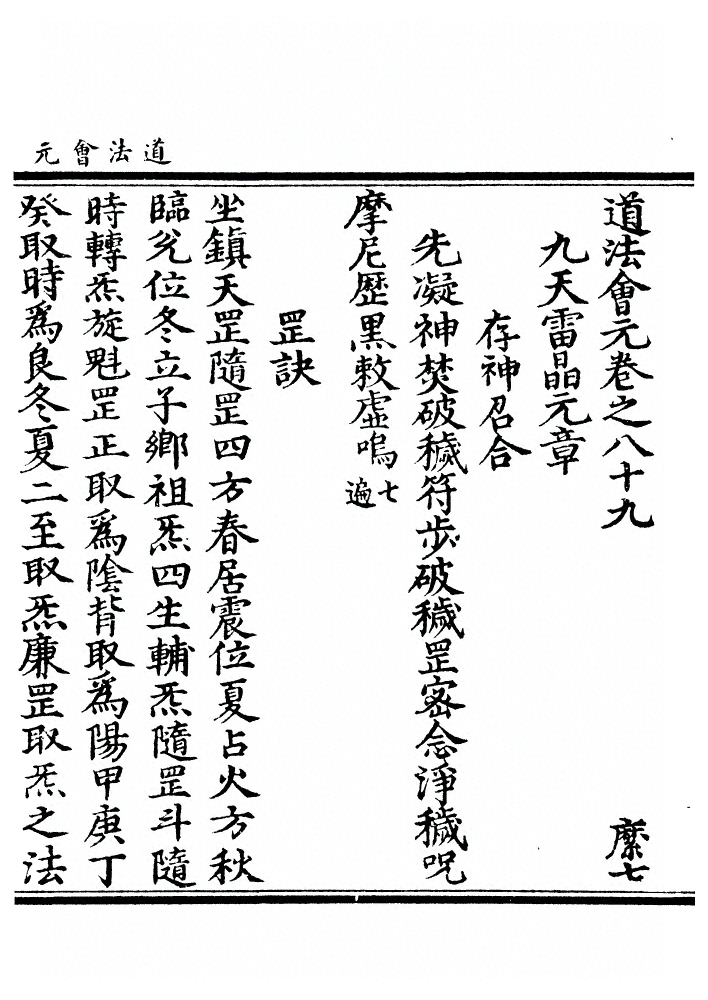 道法會元
道法會元卷之八十九　縻七
九天雷晶元章
存神召合
先凝神焚破穢符步破穢罡密念淨穢呪
摩尼歷黑敕虛嗚七遍
罡訣
坐鎮天罡隨罡四方春居震位夏占火方秋
臨兊位冬立子鄉祖炁四生輔炁隨罡斗隨
時轉炁旋魁罡正取爲陰背取爲陽甲庚丁
癸取時爲良冬夏二至取炁廉罡取炁之法